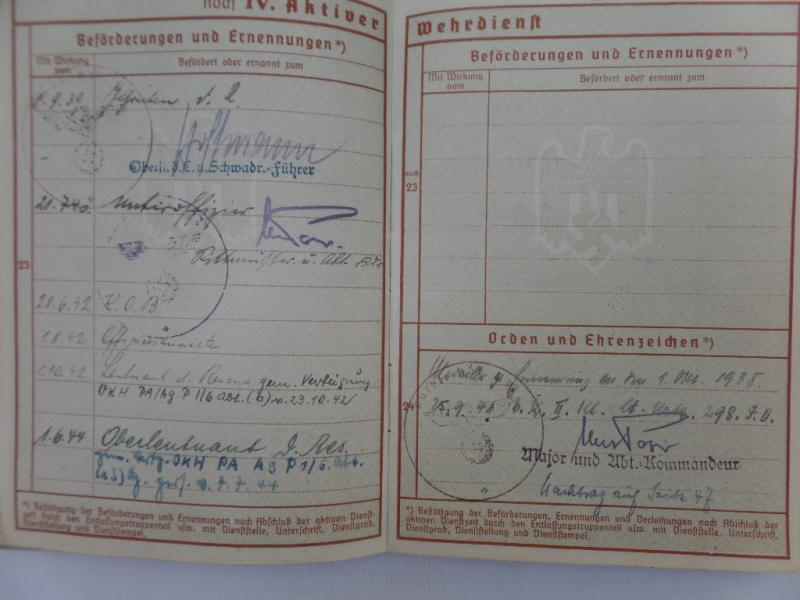 noch IV. Aktiver
Beförderungen und Ernennungen*)
Mit Wirkung vom
Befördert oder ernannt zum
Gefreiten d. R.
Hoffmann
Oberlt. d. R. u. Schwadr.-Führer
21.7.40 Unteroffizier
Rittmeister u. Abt.
23
28.6.42 K.O.B
1.8.42
1.10.42 Leutnant d. Reserve gem. Verfügung
OKH PA/Ag P 1/6 Abt. (b) v. 23.10.42
1.6.44 Oberleutnant d. Res.
gem. Verfg. OKH PA Ag P 1/6. Abt.
v. 7.7.44
*) Bestätigung der Beförderungen und Ernennungen nach Abschluß der aktiven Dienst-
zeit durch den Entlassungstruppenteil usw. mit Dienststelle, Unterschrift, Dienstgrad,
Dienststellung und Dienststempel.
Wehrdienst
Beförderungen und Ernennungen*)
Mit Wirkung vom
Befördert oder ernannt zum
noch 23
Orden und Ehrenzeichen*)
Medaille z. Erinnerung an den 1. Okt. 1938.
24
25.9.41 E.K. II. Kl. 298. J.D.
Major und Abt.-Kommandeur
Nachtrag auf Seite 47
*) Bestätigung der Beförderungen, Ernennungen und Verleihungen nach Abschluß der
aktiven Dienstzeit durch den Entlassungstruppenteil usw. mit Dienststelle, Unterschrift,
Dienstgrad, Dienststellung und Dienststempel.